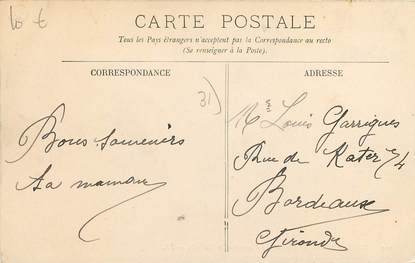 10 €
CARTE POSTALE
Tous les Pays étrangers n'acceptent pas la Correspondance au recto
(Se renseigner à la Poste).
CORRESPONDANCE
ADRESSE
31)
Louis Garrigues
Bons souvenirs
Rue de Kater
Ta maman
Bordeaux
Gironde